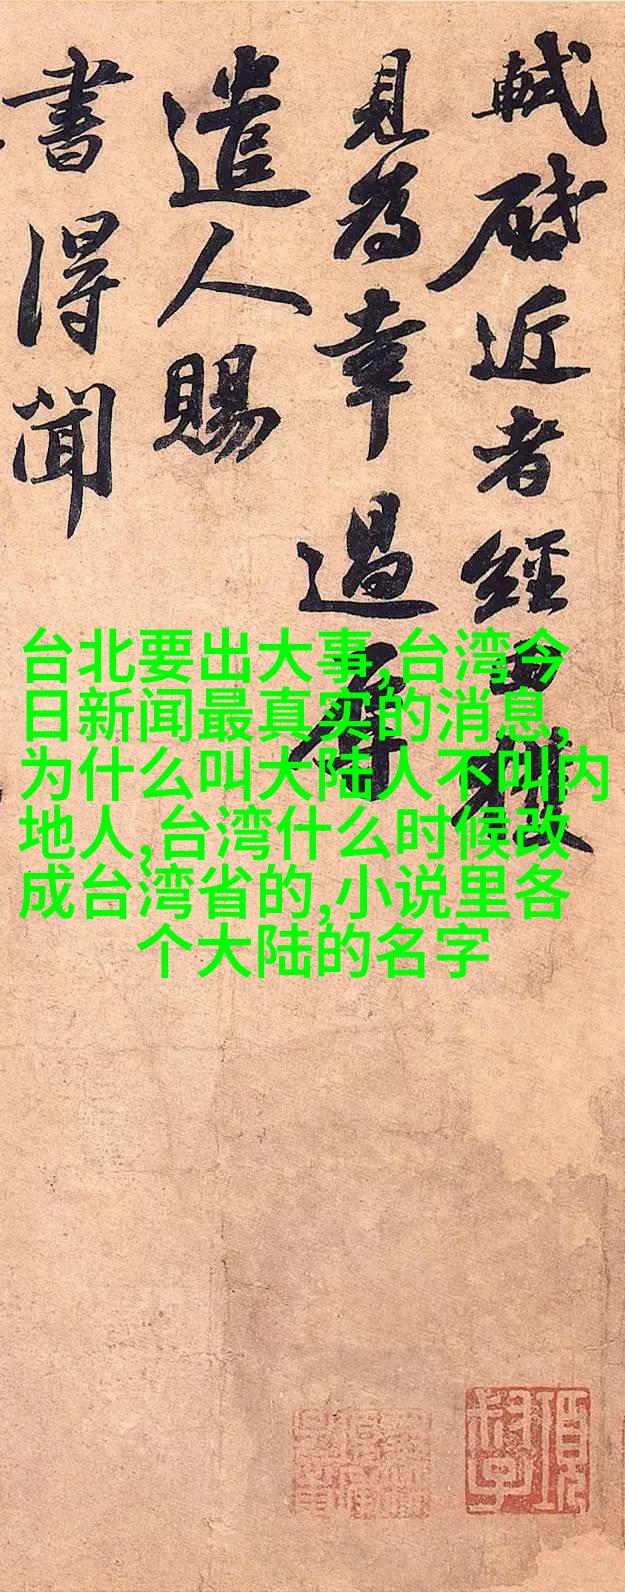 軾啓近者經由獲
見為幸過辱
遣人賜
書得聞
台北要出大事,台湾今
日新闻最真实的消息,
为什么叫大陆人不叫内
地人,台湾什么时候改
成台湾省的,小说里各
个大陆的名字